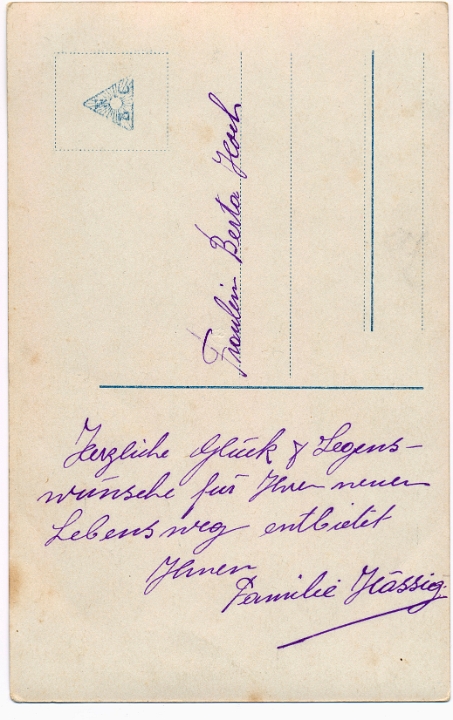 Fräulein Berta Hoch
Herzliche Glück & Segens-
wünsche für Ihren neuen
Lebensweg entbietet
Ihnen
Familie Hässig.